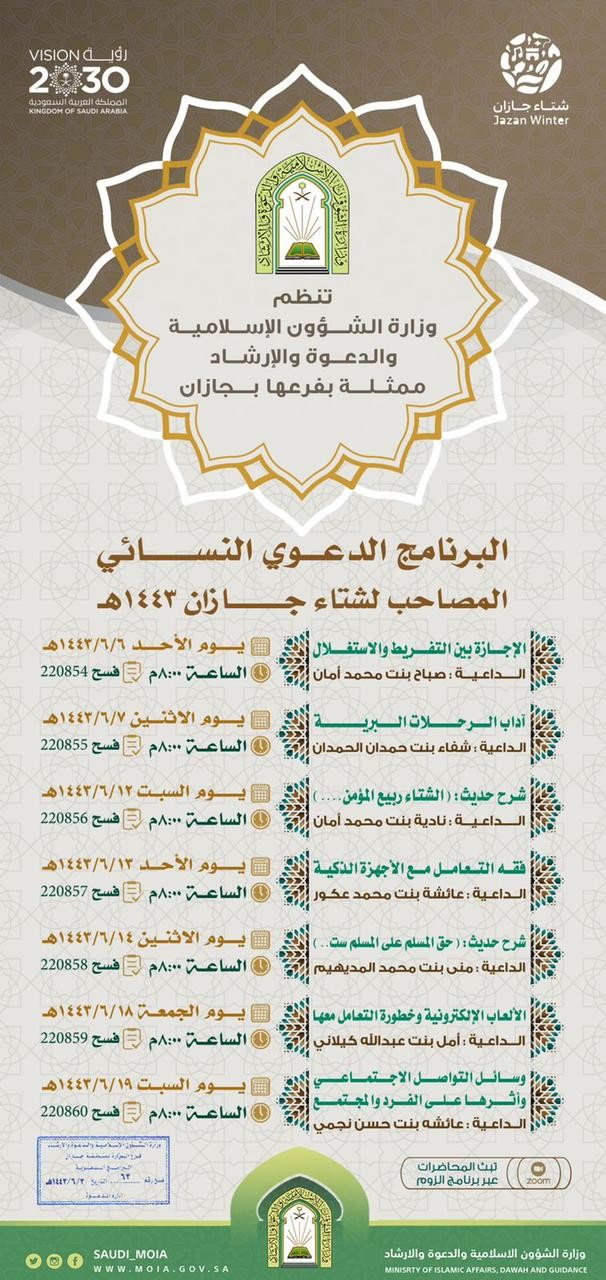 VISION رؤيــة
2030
المملكة العربية السعودية
KINGDOM OF SAUDI ARABIA
شتاء جازان
Jazan Winter
وزارة الشؤون الإسلامية والدعوة والإرشاد
تنظم
وزارة الشـــؤون الإسـلاميـة
والدعـــوة والإرشـــاد
ممثلــة بفرعها بــجازان
البرنامج الدعــوي النســـائي
المصاحب لشتاء جـــازان ١٤٤٣هـ
الإجازة بين التفـريط والاستغـلال
الـداعيـة : صباح بنت محمد أمان
يــوم الأحــد ١٤٤٣/٦/٦هـ
الساعـة ٨:٠٠م فسح 220854
آداب الـرحـلات البريــة
الـداعية : شفاء بنت حمدان الحمدان
يــوم الاثنـين ١٤٤٣/٦/٧هـ
الساعـة ٨:٠٠م فسح 220855
شرح حديث : ( الشتاء ربيع المؤمن.... )
الـداعيـة : نادية بنت محمد أمان
يــوم السبت ١٤٤٣/٦/١٢هـ
الساعـة ٨:٠٠م فسح 220856
فقه التعـامـل مـع الأجهزة الذكية
الـداعية : عائشة بنت محمد عكور
يــوم الأحــد ١٤٤٣/٦/١٣هـ
الساعـة ٨:٠٠م فسح 220857
شرح حديث : ( حق المسلم على المسلم ست.. )
الداعية : منى بنت محمد المديهيم
يــوم الاثنـين ١٤٤٣/٦/١٤هـ
الساعـة ٨:٠٠م فسح 220858
الألعاب الإلكترونية وخطورة التعامل معها
الداعية : أمل بنت عبدالله كيلاني
يــوم الجمعـة ١٤٤٣/٦/١٨هـ
الساعـة ٨:٠٠م فسح 220859
وسـائل التواصل الاجتمـاعـي
وأثـرها علـى الفرد والمجتمع
الداعية : عائشه بنت حسن نجمي
يــوم السبت ١٤٤٣/٦/١٩هـ
الساعـة ٨:٠٠م فسح 220860
وزارة الشؤون الإسلامية والدعوة والإرشاد
فرع الوزارة بمنطقة جازان
البرامج الدعوية
٦٣ التاريخ ١٤٤٣/٦/٣هـ
إدارة الدعـوة
تبث المحاضرات
عبر برنامج الزوم
zoom
SAUDI_MOIA
WWW.MOIA.GOV.SA
وزارة الشؤون الاسلامية والدعوة والارشاد
MINISRTY OF ISLAMIC AFFAIRS, DAWAH AND GUIDANCE